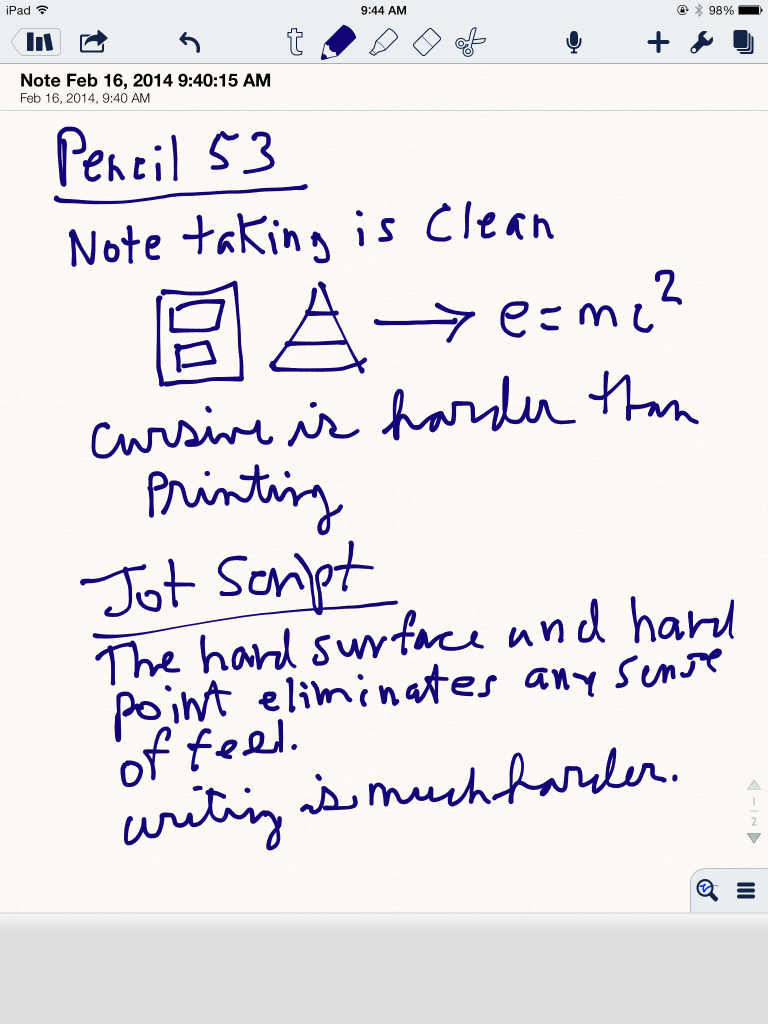 iPad 9:44 AM 98%
t
Note Feb 16, 2014 9:40:15 AM
Feb 16, 2014, 9:40 AM
Pencil 53
Note taking is Clean
e=mc²
cursive is harder than
Printing
Jot Script
The hard surface and hard
point eliminates any sense
of feel.
writing is much harder.
1
2